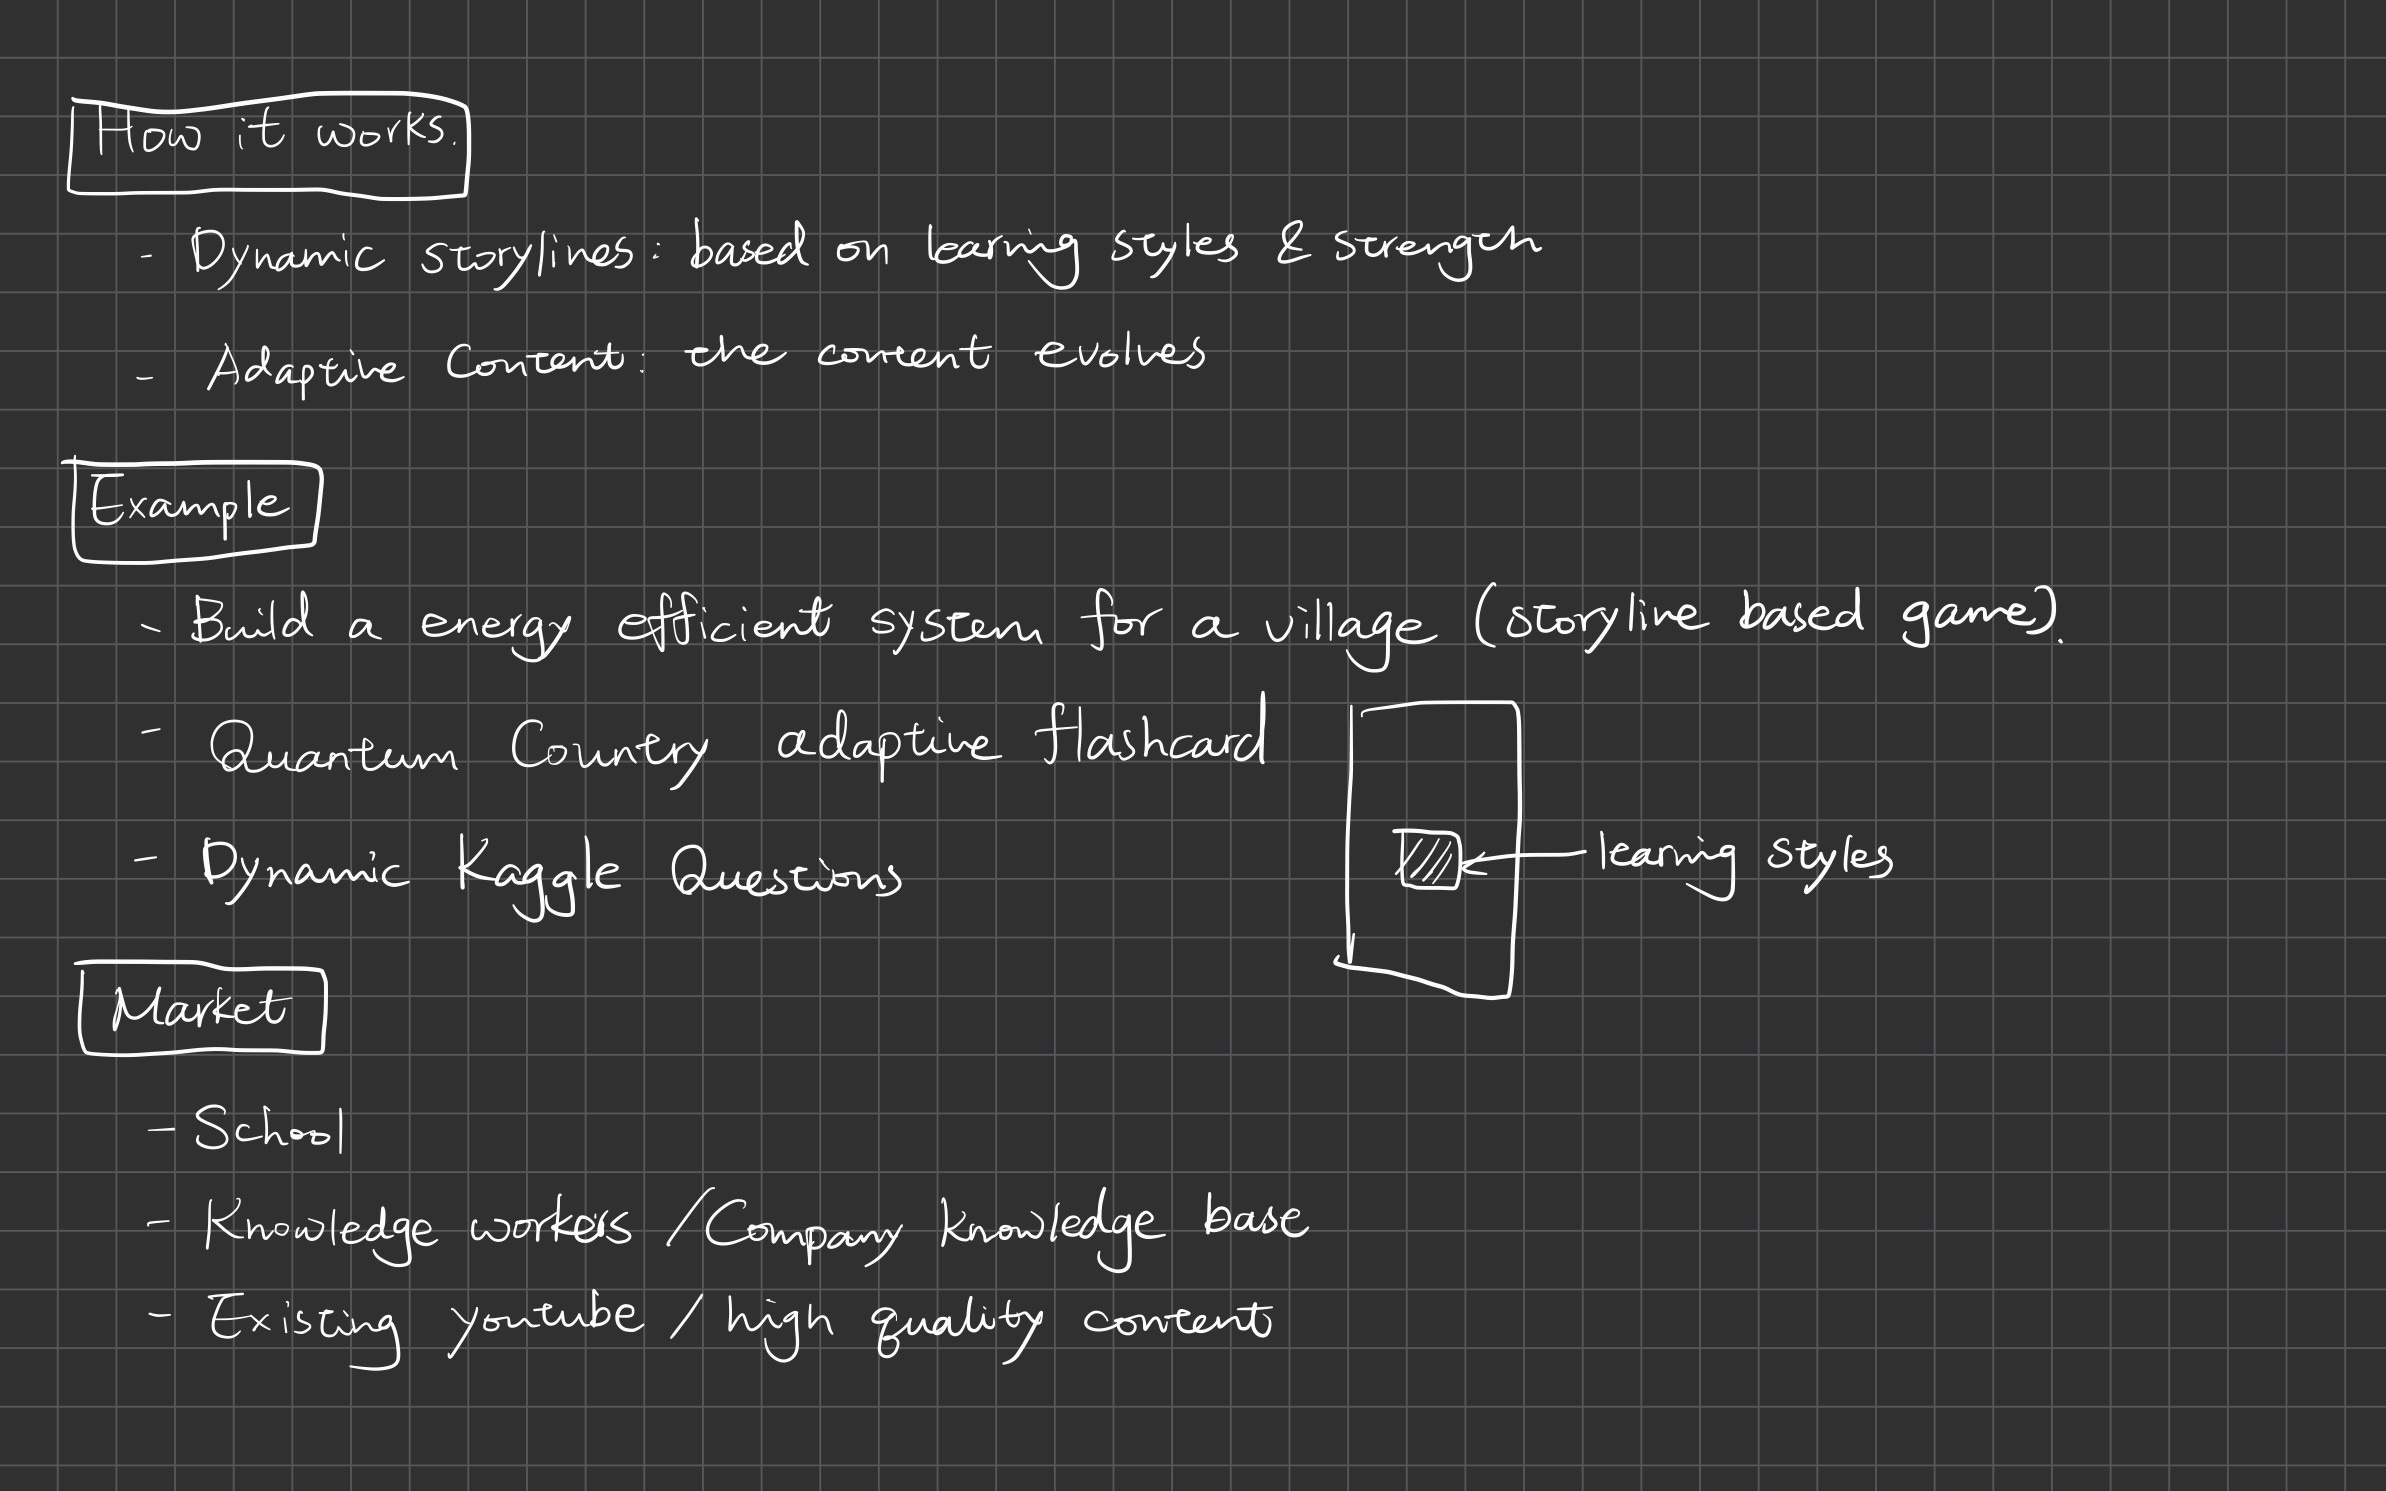 How it works.
- Dynamic storylines: based on learning styles & strength
- Adaptive Content: the content evolves
Example
- Build a energy efficient system for a village (storyline based game).
- Quantum Country adaptive flashcard
- Dynamic Kaggle Questions
learning styles
Market
- School
- Knowledge workers / Company knowledge base
- Existing youtube / high quality content